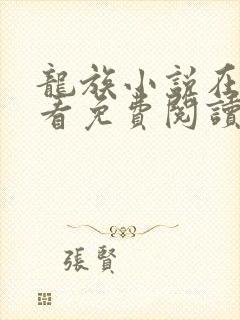 龍族小説在
看免費閱讀
張賢